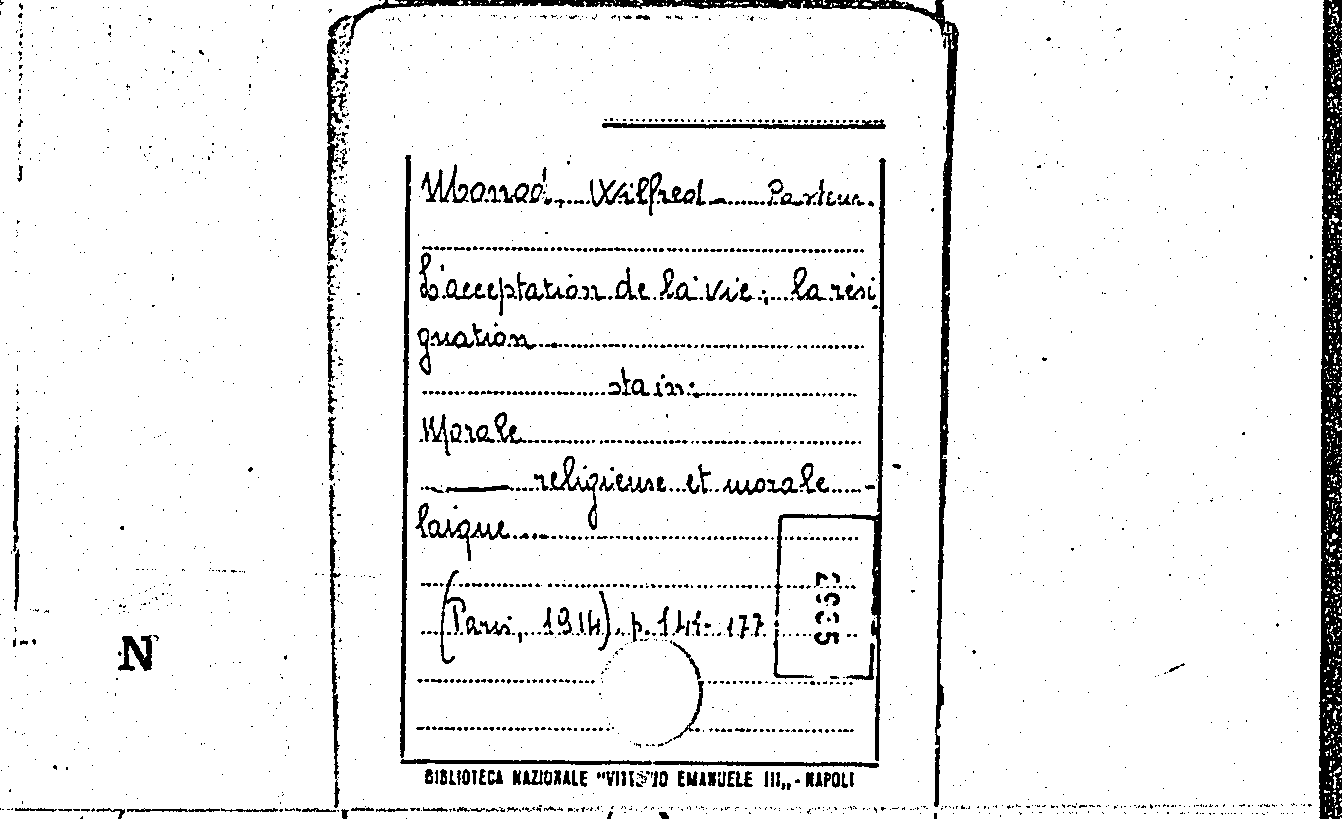 Monod, Wilfred - Pasteur.
L'acceptation de la vie; la rési
gnation
sta in:
Morale
——— religieuse et morale -
laique
(Paris, 1914). p. 144-177
2535
N
BIBLIOTECA NAZIONALE "VITTORIO EMANUELE III„ - NAPOLI